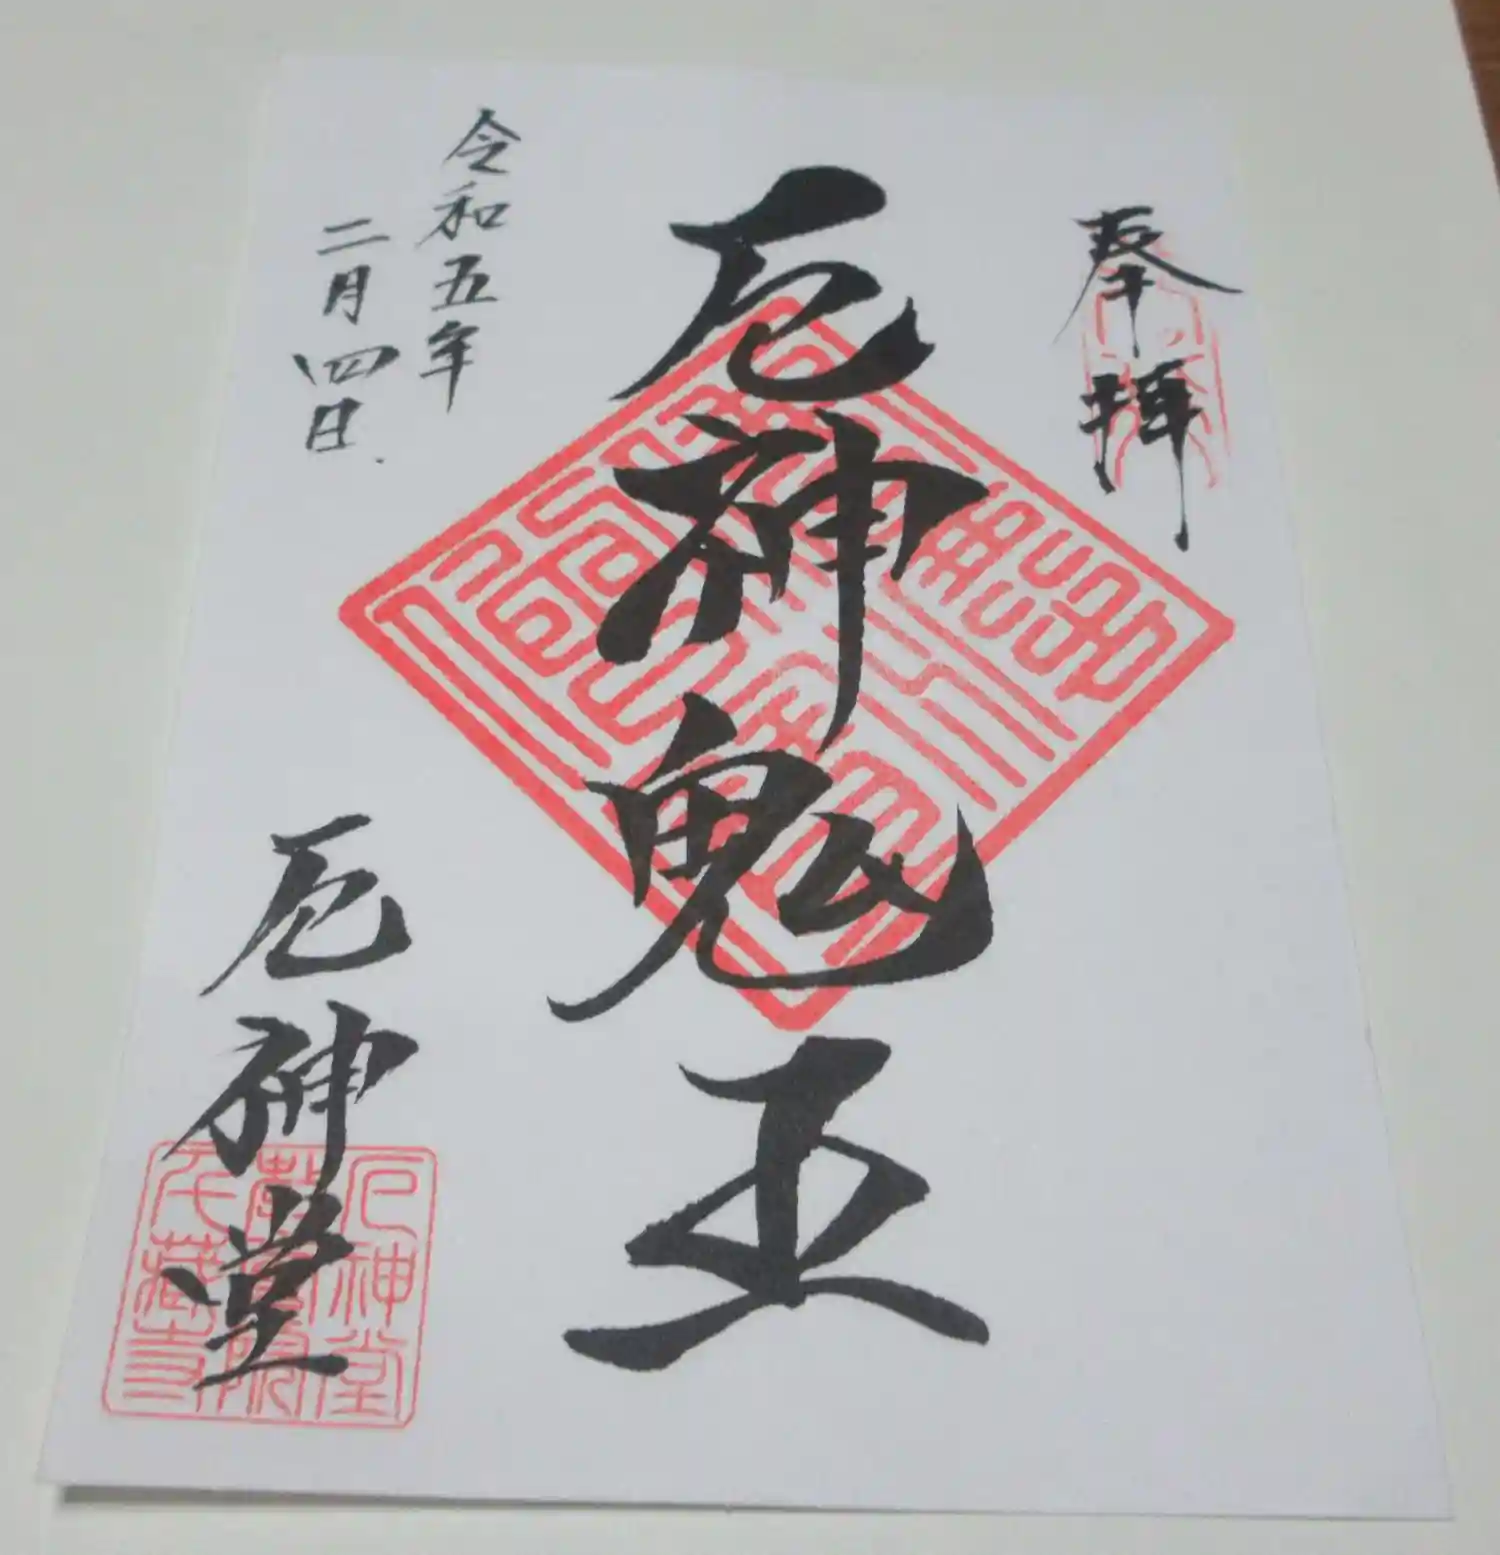 奉拝
厄神鬼王
令和五年
二月四日
厄神堂